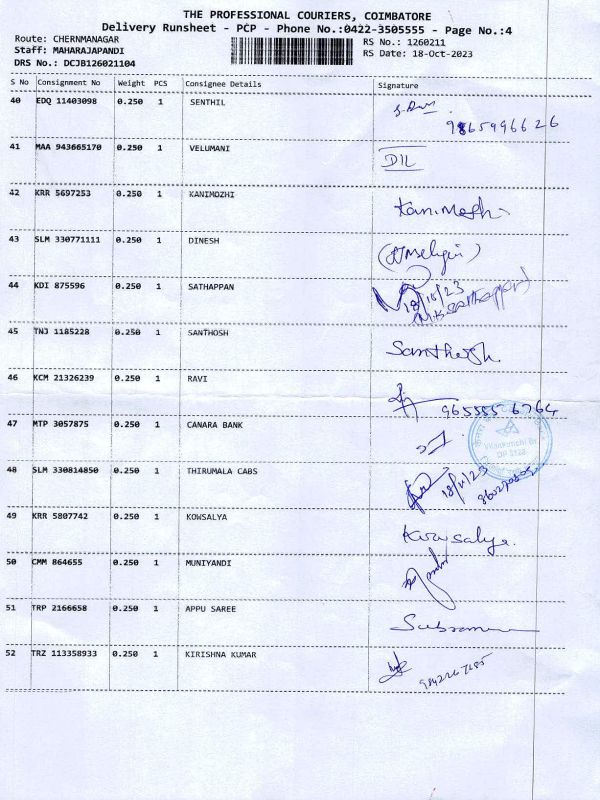 THE PROFESSIONAL COURIERS, COIMBATORE
Delivery Runsheet - PCP - Phone No.:0422-3505555 - Page No.:4
Route: CHERNMANAGAR
RS No.: 1260211
Staff: MAHARAJAPANDI
RS Date: 18-Oct-2023
DRS No.: DCJB126021104
S No Consignment No Weight PCS Consignee Details Signature
40 EDQ 11403098 0.250 1 SENTHIL
9865996626
41 MAA 943665170 0.250 1 VELUMANI
42 KRR 5697253 0.250 1 KANIMOZHI Kanimozhi
43 SLM 330771111 0.250 1 DINESH
44 KDI 875596 0.250 1 SATHAPPAN
18/10/23
45 TNJ 1185228 0.250 1 SANTHOSH Santhosh
46 KCM 21326239 0.250 1 RAVI
9655556764
47 MTP 3057875 0.250 1 CANARA BANK
48 SLM 330814850 0.250 1 THIRUMALA CABS
49 KRR 5807742 0.250 1 KOWSALYA Kowsalya.
50 CMM 864655 0.250 1 MUNIYANDI
51 TRP 2166658 0.250 1 APPU SAREE
52 TRZ 113358933 0.250 1 KIRISHNA KUMAR